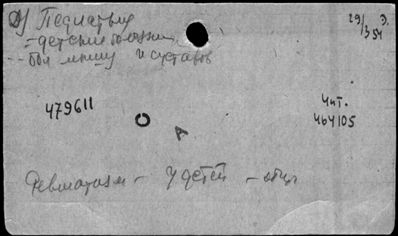 Педиатрия
29/3 54 Э.
- детские болезни
-- бол мышц и суставов
479611
Чит.
464105
О
А
Ревматизм - у детей - общ